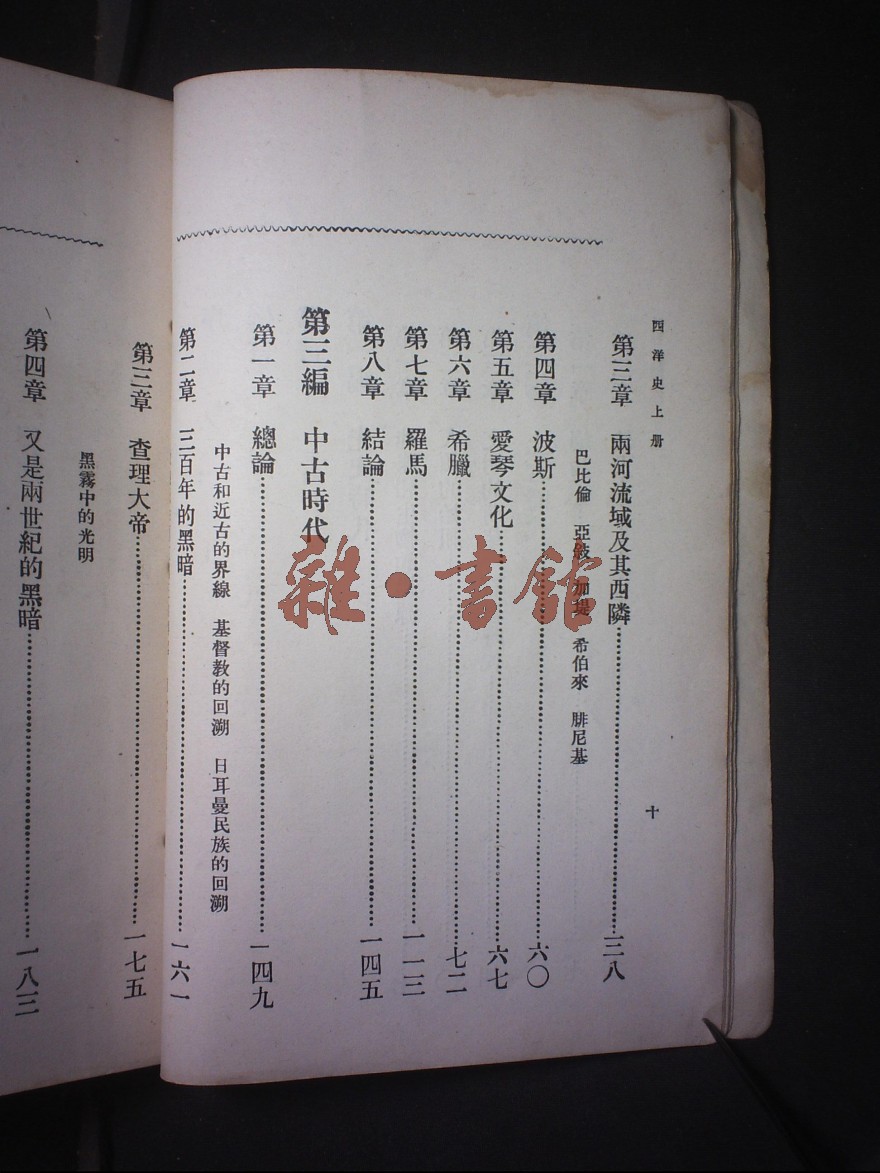 西洋史上册
十
第三章 兩河流域及其西隣 三八
巴比倫 亞敍 加提 希伯來 腓尼基
第四章 波斯 六〇
第五章 愛琴文化 六七
第六章 希臘 七二
第七章 羅馬 一一三
第八章 結論 一四五
第三編 中古時代
第一章 總論 一四九
中古和近古的界線 基督教的回溯 日耳曼民族的回溯
第二章 三百年的黑暗 一六一
第三章 查理大帝 一七五
黑霧中的光明
第四章 又是兩世紀的黑暗 一八三
雜·書館